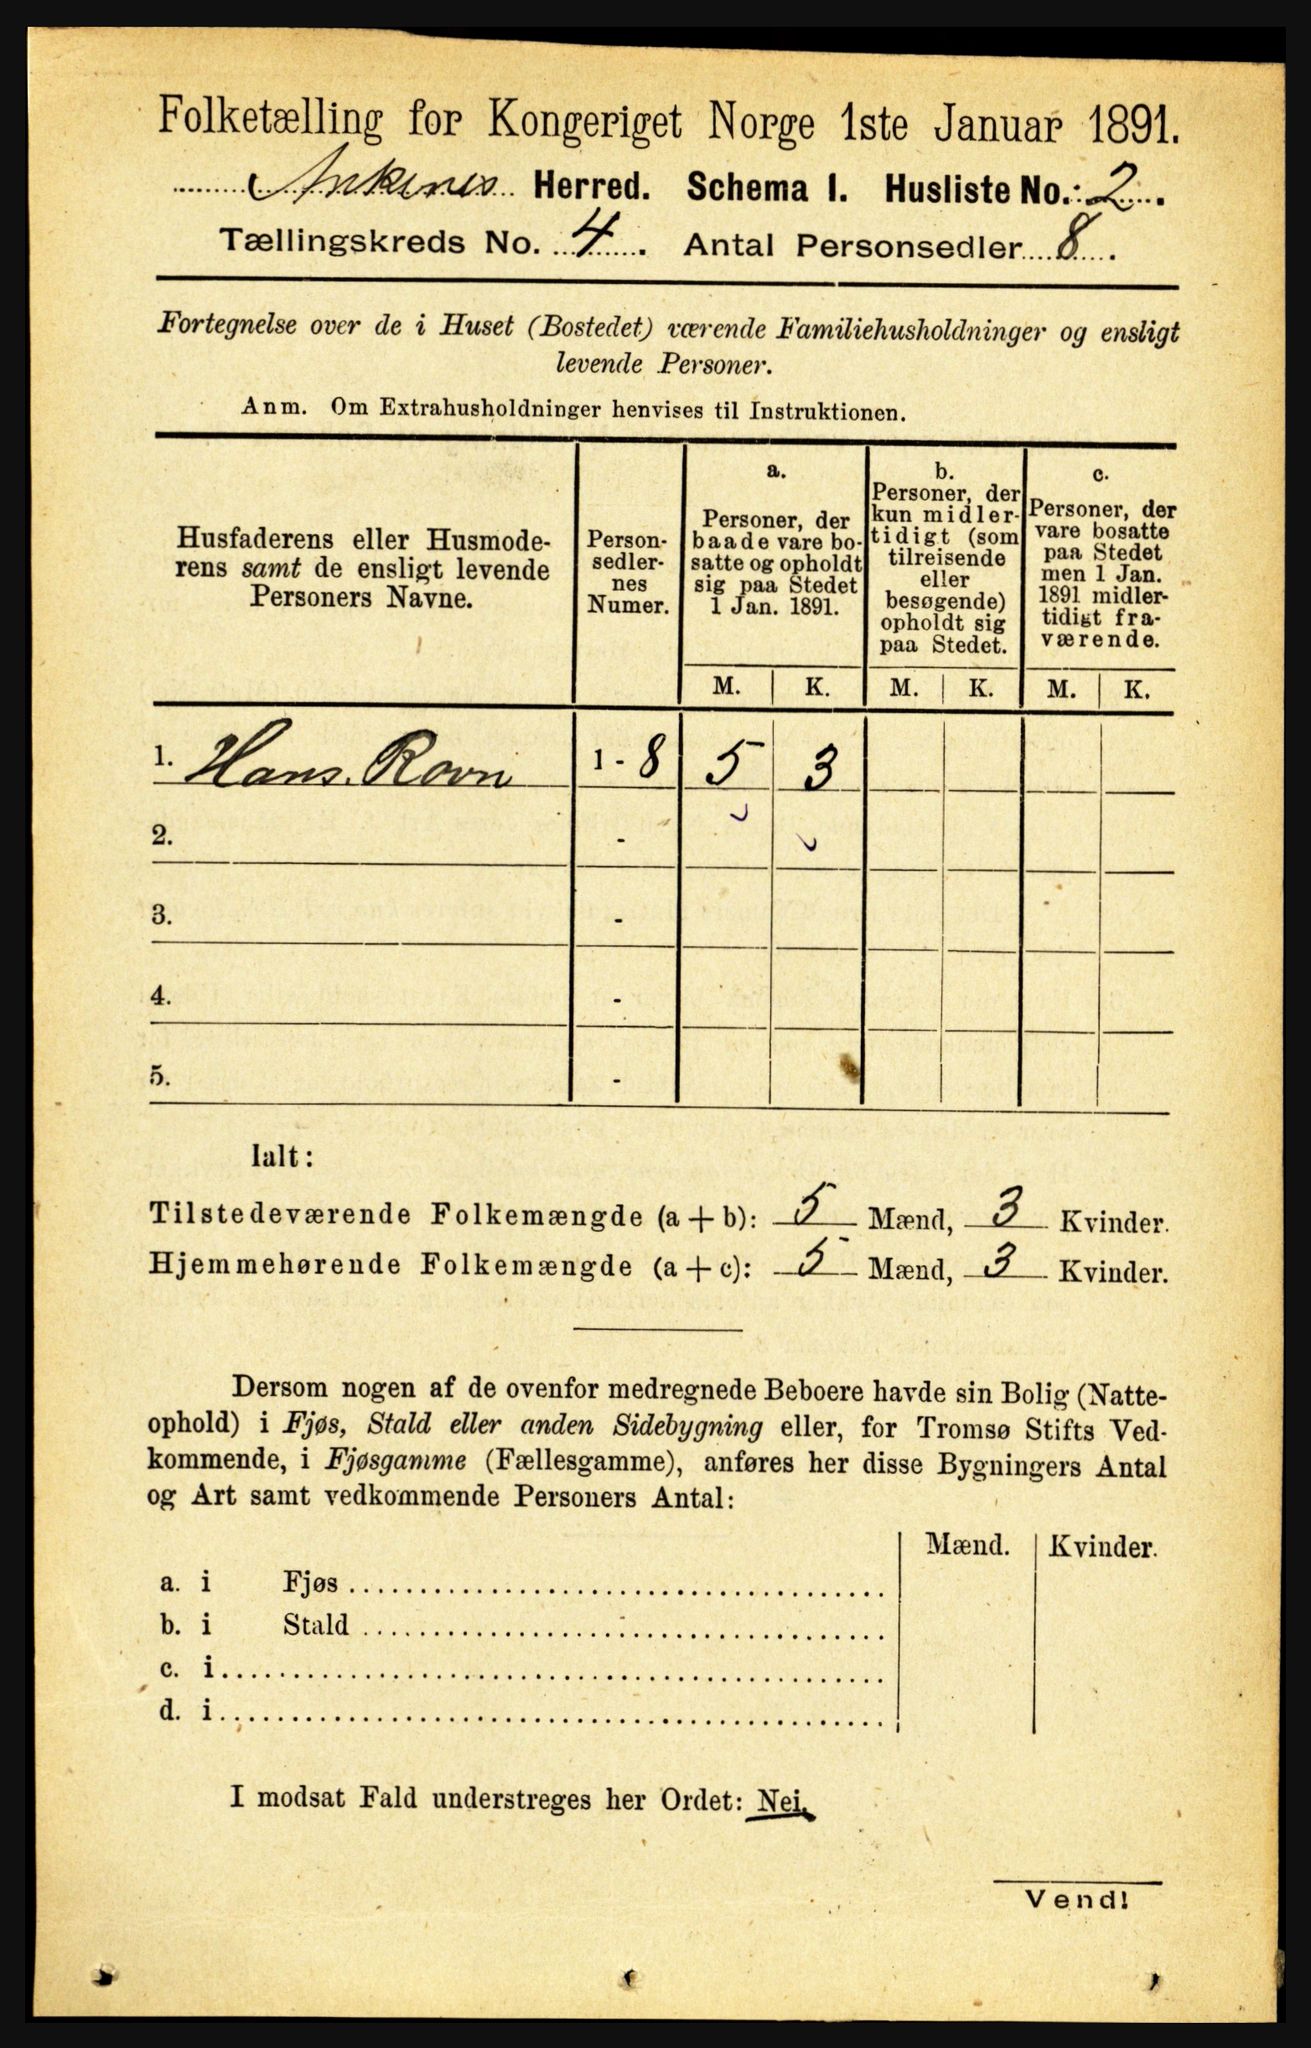 Folketælling for Kongeriget Norge 1ste Januar 1891.
Ankenes Herred. Schema 1. Husliste No.: 2.
Tællingskreds No. 4. Antal Personsedler 8.
Fortegnelse over de i Huset (Bostedet) værende Familiehusholdninger og ensligt
levende Personer.
Anm. Om Extrahusholdninger henvises til Instruktionen.
Husfaderens eller Husmode-
rens samt de ensligt levende
Personers Navne.
Person-
sedler-
nes
Numer.
a.
Personer, der
baade vare bo-
satte og opholdt
sig paa Stedet
1 Jan. 1891.
b.
Personer, der
kun midler-
tidigt (som
tilreisende
eller
besøgende)
opholdt sig
paa Stedet.
c.
Personer, der
vare bosatte
paa Stedet
men 1 Jan.
1891 midler-
tidigt fra-
værende.
M. K. M. K. M. K.
1. Hans Ravn 1 - 8 5 3
2. -
3. -
4. -
5. -
Ialt:
Tilstedeværende Folkemængde (a + b): 5 Mænd, 3 Kvinder.
Hjemmehørende Folkemængde (a + c): 5 Mænd, 3 Kvinder.
Dersom nogen af de ovenfor medregnede Beboere havde sin Bolig (Natte-
ophold) i Fjøs, Stald eller anden Sidebygning eller, for Tromsø Stifts Ved-
kommende, i Fjøsgamme (Fællesgamme), anføres her disse Bygningers Antal
og Art samt vedkommende Personers Antal:
Mænd. Kvinder.
a. i Fjøs
b. i Stald
c. i
d. i
I modsat Fald understreges her Ordet: Nei.
Vend!